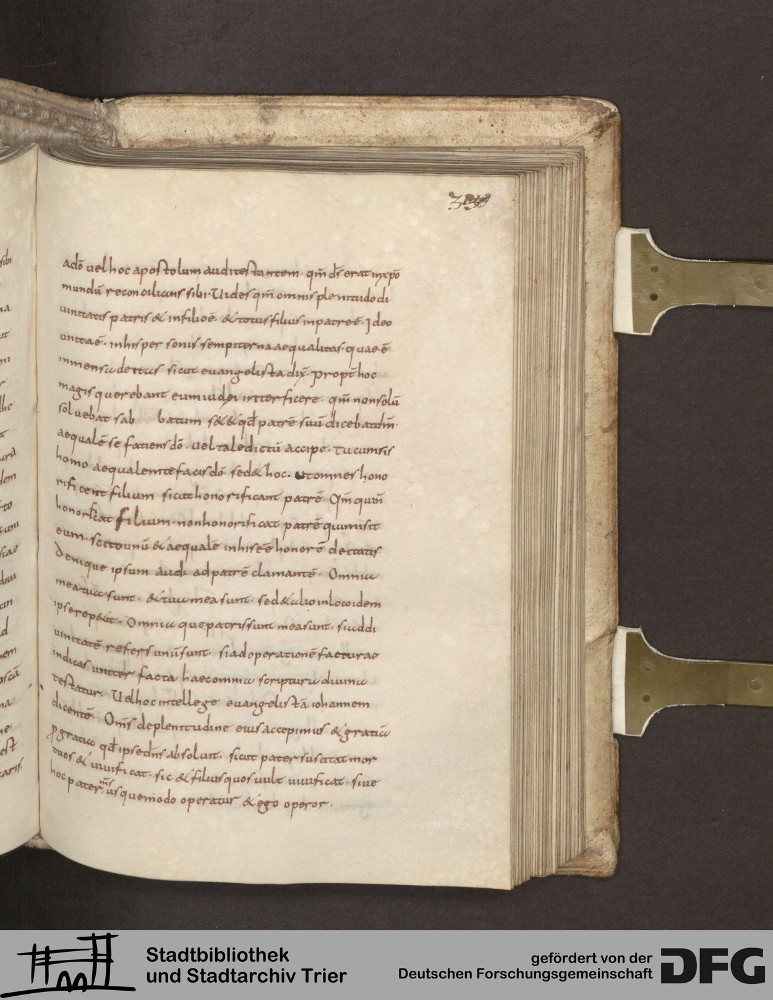 ado uel hoc apostolum audi testantem · qm ds erat in xpo
mundu reconcilians sibi · Uides qm omnis plenitudo di
uinitatis patris & in filio e · & totus filius in patre e · Ideo
unita e · in his personis sempiterna aequalitas · quae e
inmensa deitas sicut euangelista dix · propt hoc
magis querebant eum iudei interficere · qm non solu
soluebat sabbatum s& & qd patre suu dicebat dm ·
aequale se faciens do · uel tale dictu accipe · Tu cum sis
homo aequalem te facis do sed & hoc · ut omnes hono
rificent filium sicut honorificant patre · Qm qui non
honorificat filium · non honorificat patre qui misit
eum · secto unu & aequale in his e honore deitatis
Denique ipsum audi ad patre clamante · Omnia
mea tua sunt · & tua mea sunt · sed & alio in loco idem
ipse rep&it · Omnia que patris sunt mea sunt · si ad di
uinitate refers unu sunt · si ad operatione facturae
indicas uniter facta haec omnia scriptura diuina
testatur · Uel hoc intellege euangelista iohannem
dicente · Oms de plenitudine eius accepimus & gratia
p gratia qd ipse dns absoluit · sicut pater suscitat mor
tuos & uiuificat · sic & filius quos uult uiuificat · siue
hoc pater ms usque modo operatur & ego operor ·
Stadtbibliothek
und Stadtarchiv Trier
gefördert von der
Deutschen Forschungsgemeinschaft
DFG